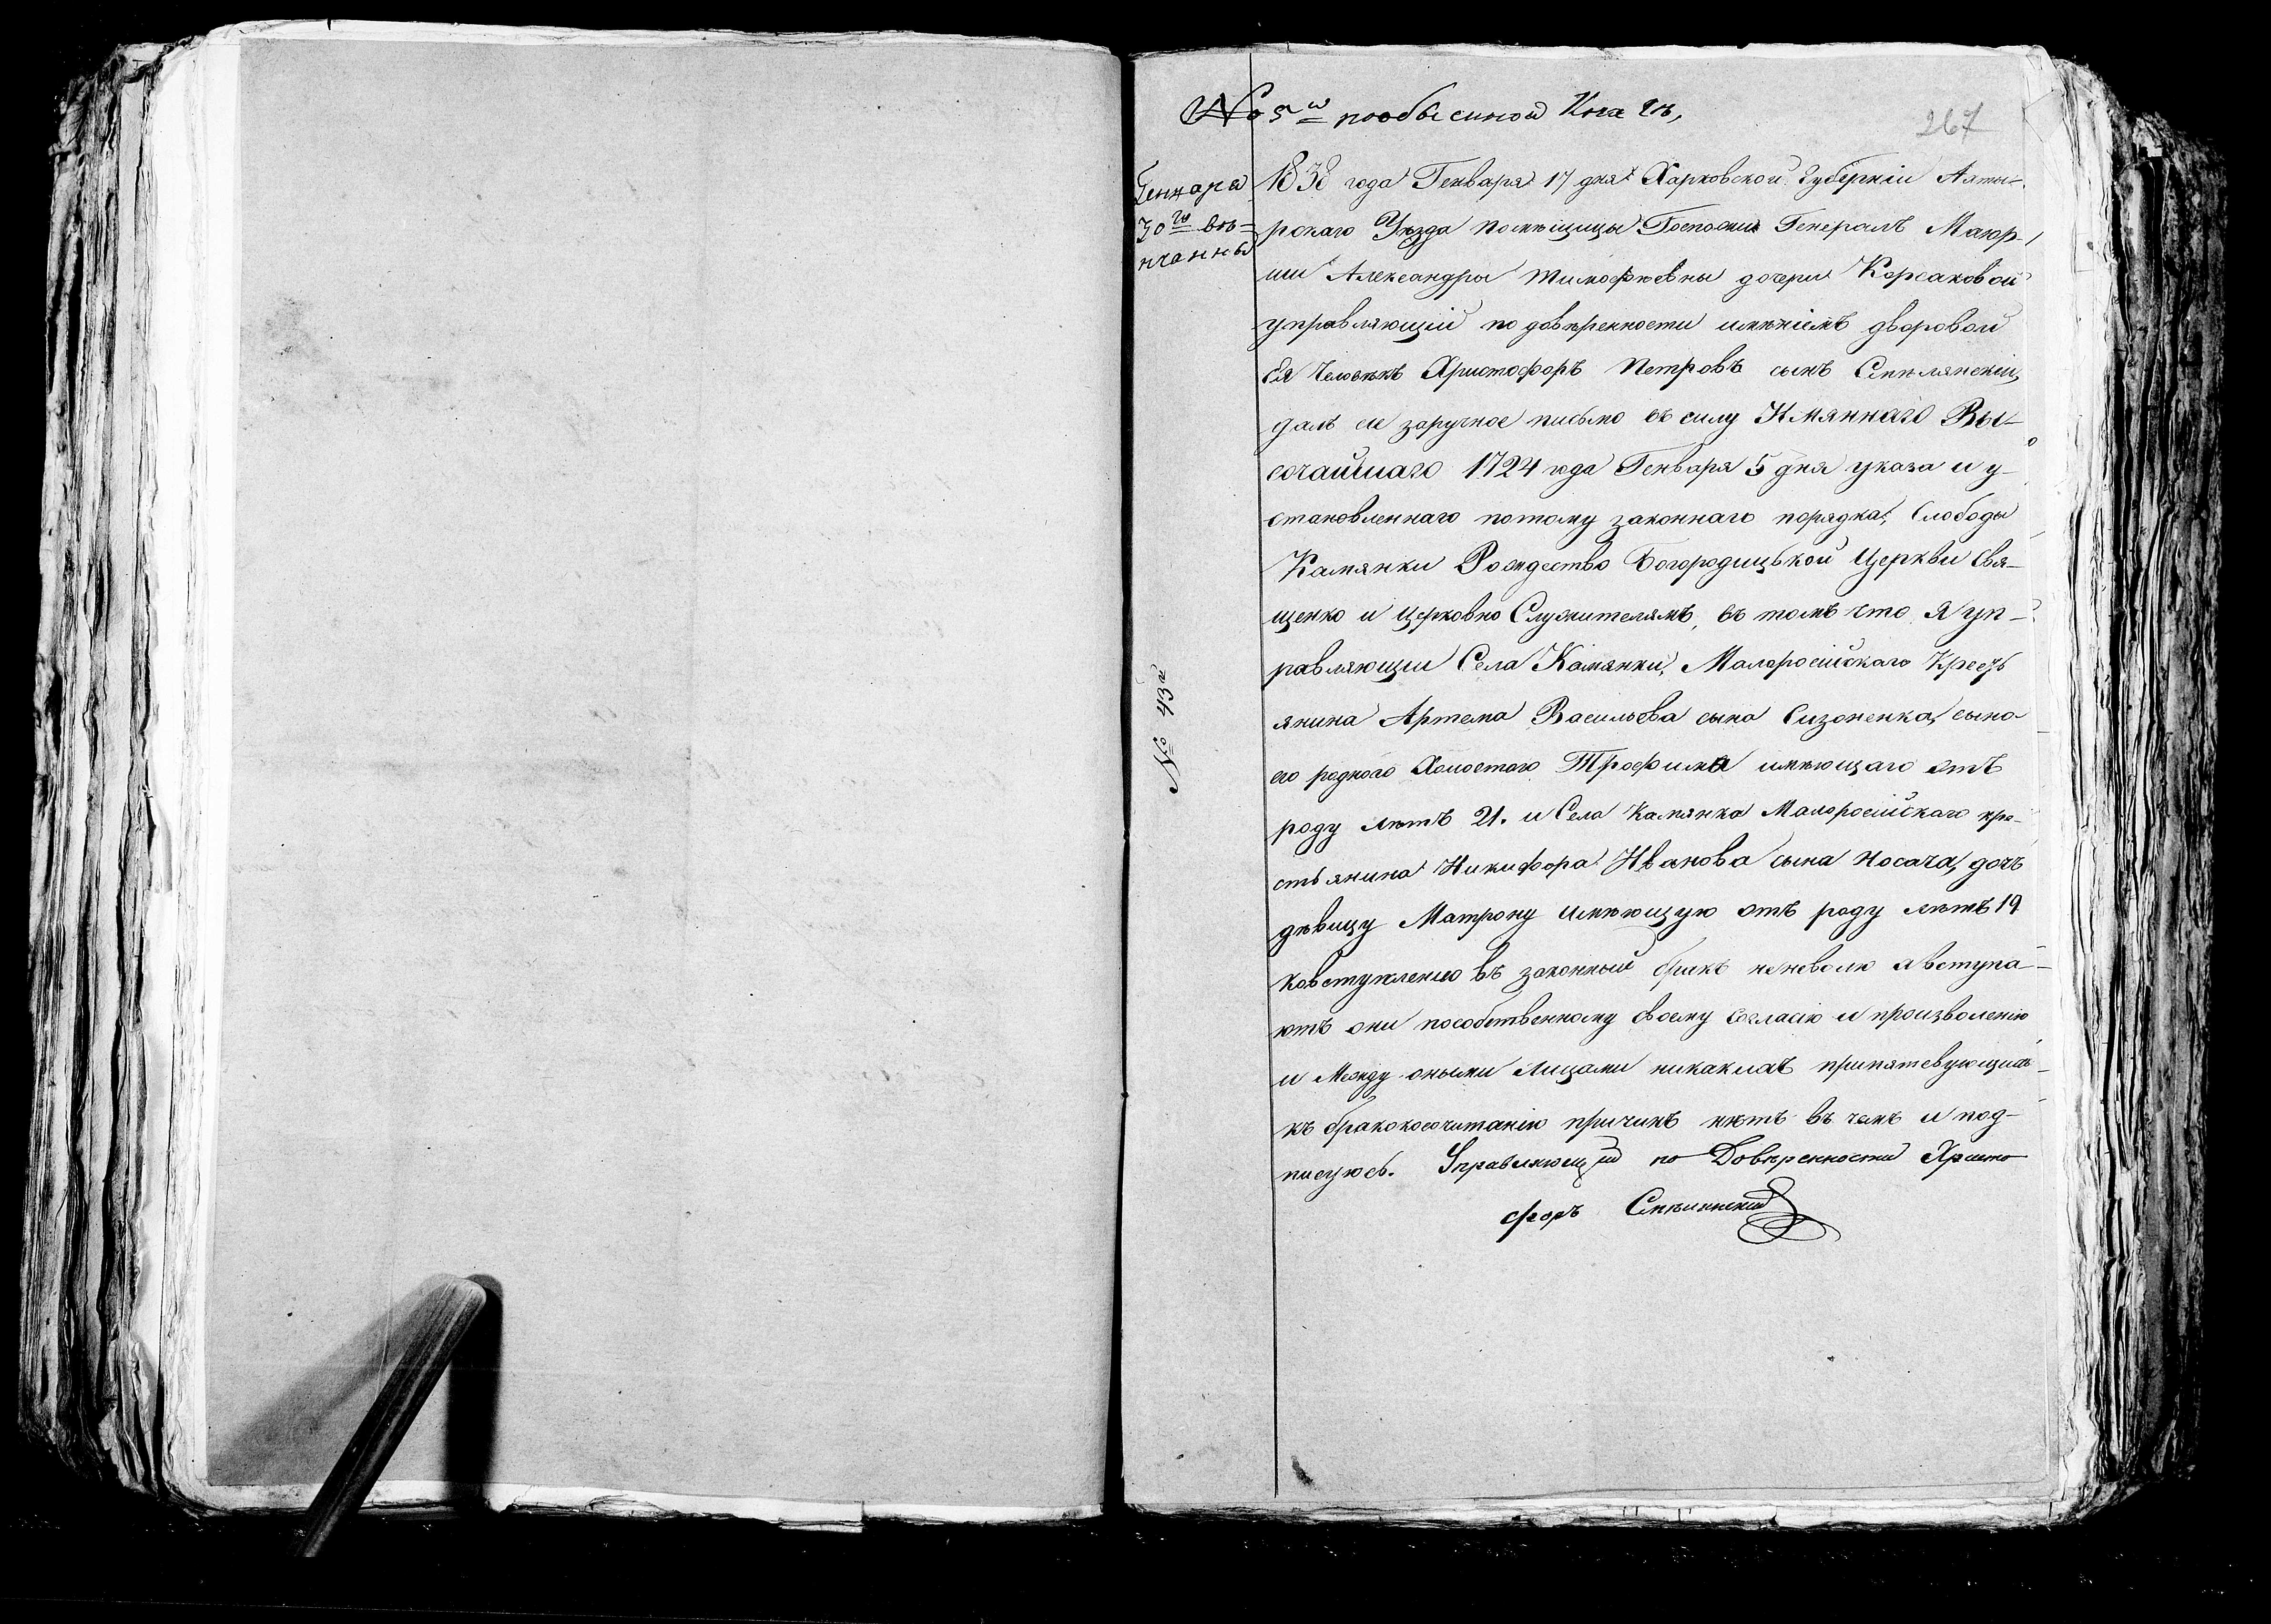 № 5й пообыскной Книгѣ,
267
Генваря
30го вѣ=
нчанны
№ 43й
1838 года Генваря 17 дня Харковской Губерніи Ахты-
рскаго Уѣзда помѣщицы Госпожи Генералъ Маіор-
ши Александры Тимофѣевны дочери Корсаковой
управляющій по довѣренности имѣніемъ дворовой
Ея Человѣкъ Христофоръ Петровъ сынъ Смѣлянскій,
далъ сіе заручное письмо въ силу Имяннаго Вы-
сочайшаго 1724 года Генваря 5 дня указа и у-
становленнаго потому законнаго порядка, Слободы
Камянки Рождество Богородицькой Церкви Свя-
щенно и церковно Служителямъ, въ томъ что Я уп-
равляющи Села Камянки, Малоросійскаго Кресть
янина Артема Васильева сына Сизоненка, сына
его роднаго Холостаго Трофима имѣющаго отъ
роду лѣтъ 21. и Села Камянка Малоросійскаго кре-
стьянина Никифора Иванова сына Носача, дочъ
дѣвицу Матрону имѣющую отъ роду лѣтъ 19
ковступленію въ законный бракъ неневолю авступа-
ютъ они пособственному своему согласію и произволенію
и Между оными Лицами никакихъ припятевующихъ
къ бракокосочитанію причинъ нѣтъ въ чемъ и под-
писуюсь. Управляющій по Довѣренности Христо
форъ Смѣлянский